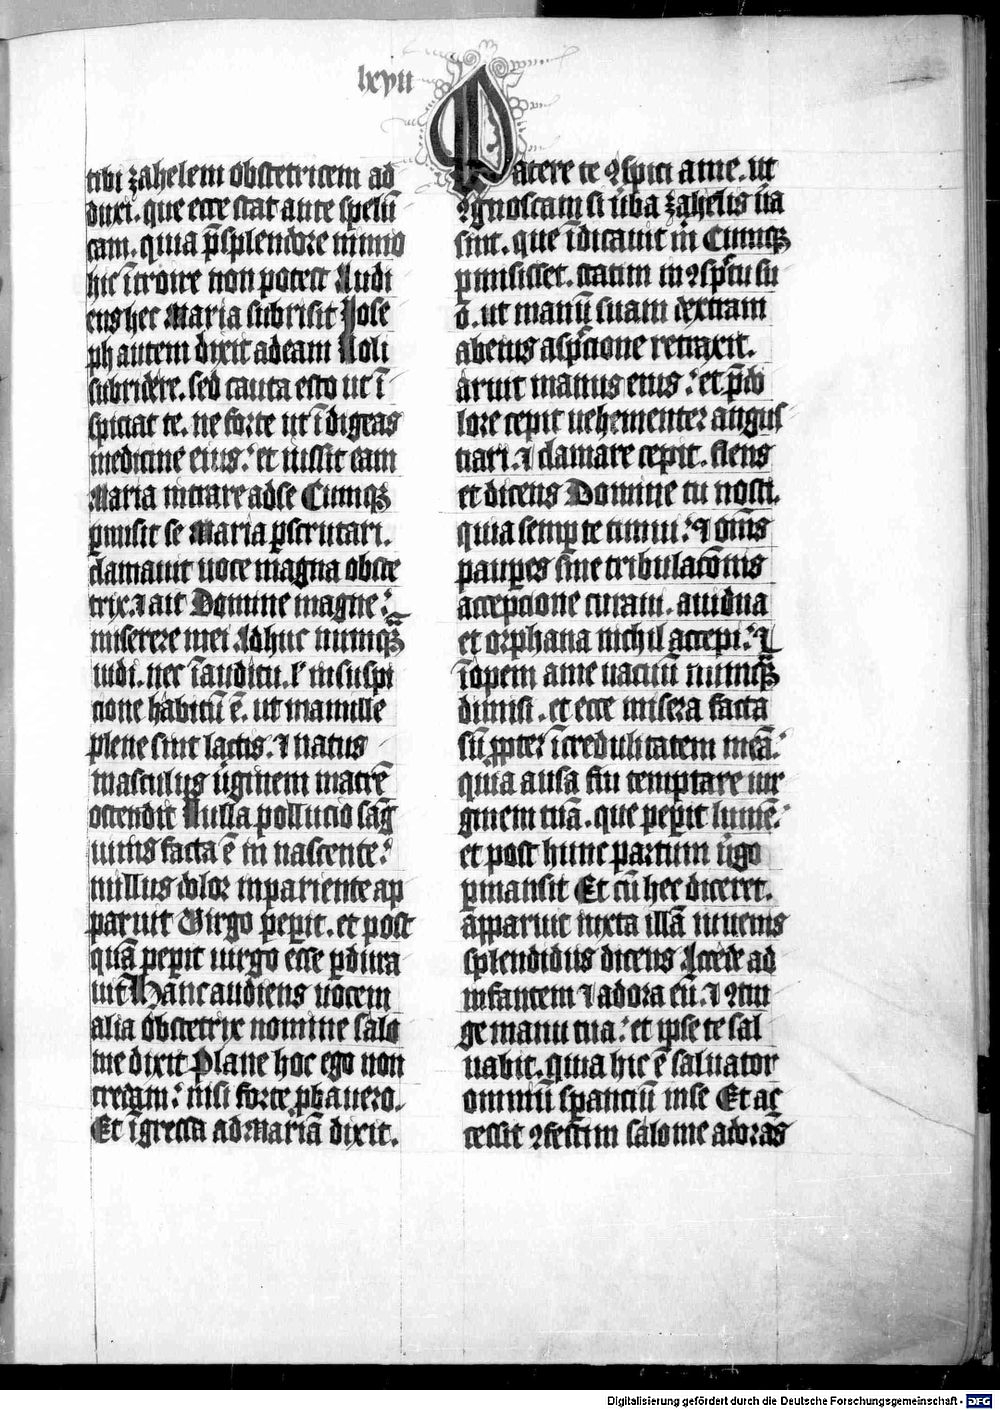 lxvii
tibi zahelem obstetricem ad
duxi. que ecce stat ante spelū
cam. quia p̄ splendore nimio
hic ītroire non potest Audi
ens hec Maria subrisit Jose
ph autem dixit ad eam Noli
subridere. sed cauta esto ut ī
spiciat te. ne forte ut īdigeas
medicine eius: et iussit eam
Maria intrare ad se Cumqꝫ
ꝑmisit se Maria ꝑscrutari.
clamauit uoce magna obste
trix. ⁊ ait Domine magne:
miserere mei Adhuc numqꝫ̄
uidi. nec ī auditu. lʼ in suspi
cione habitū ē. ut mamille
plene sint lactis. ⁊ natus
masculus uͥginem matrē
ostendit Nulla pollucio sāg
uinis facta ē in nascente:
nullus dolor in pariente ap
paruit Virgo peꝑit. et post
quā peꝑit uirgo esse ꝑdura
uit Hanc audiens uocem
alia obstetrix nomine salo
me dixit Plane hoc ego non
credam: nisi forte ꝓbauero.
Et īgressa ad Mariā dixit.
Patere te ꝯspici a me. ut
ꝯgnoscam si uͥba zahelis ūa
sint. que īdicauit m̄ Cumqꝫ
ꝑmisisset. statim in ꝯspc̄tu su
o. ut manū suam dextram
ab eius aspc̄cione retraxit.
aruit manus eius: et p̄ do
lore cepit uehementer angus
tiari. ⁊ clamare cepit. flens
et dicens Domine tu nosti.
quia semꝑ te timui: ⁊ om̄s
pauꝑes sine tribulac̄onis
accepcione curaui. a uidua
et orphana nichil accepi: ⁊
īopem a me uacuū numqꝫ̄
dimisi. et ecce misera facta
sū ꝓpter īcredulitatem meā:
quia ausa fui temptare uir
ginem tuā. que peꝑit lumē:
et post hunc partum uͥgo
ꝑmansit Et cū hec diceret.
apparuit iuxta illā iuuenis
splendidus dicens Accede ad
infantem ⁊ adora eū. ⁊ ꝯtin
ge manu tua: et ipse te sal
uabit. quia hic ē saluator
omniū sꝑanciū in se Et ac
cessit ꝯfestim salome adorās
Digitalisierung gefördert durch die Deutsche Forschungsgemeinschaft - DFG